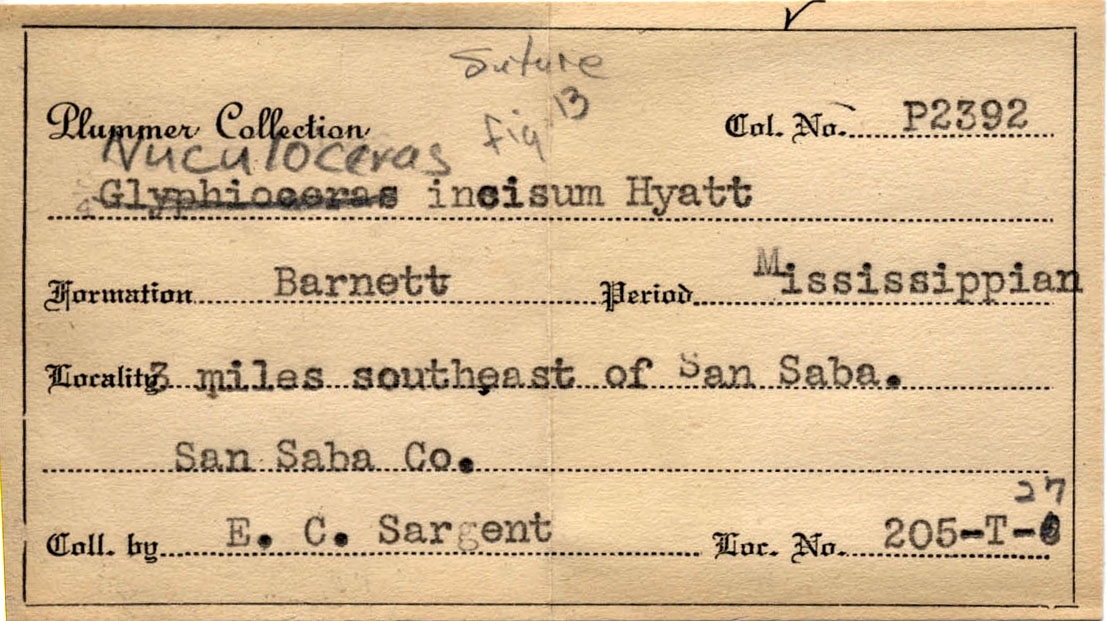 Suture
fig 13
Plummer Collection Col. No. P2392
Nuculoceras
Glyphioceras incisum Hyatt
Formation Barnett Period Mississippian
Locality 3 miles southeast of San Saba.
San Saba Co.
27
Coll. by E. C. Sargent Loc. No. 205-T-